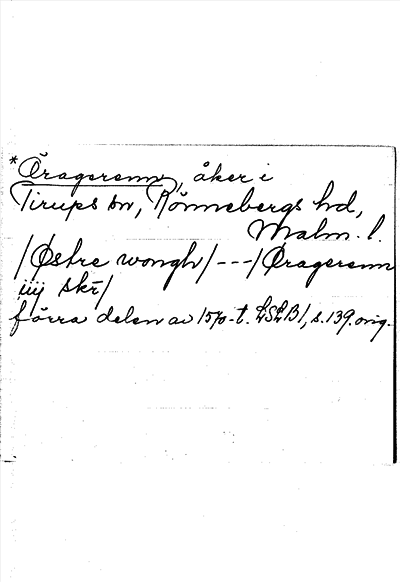 *Öragersnn, åker i
Tirups sn, Rönnebergs hd,
Malm. l.
/Østre wongh/---/Øragersnn
iiij skr̄/
förra delen av 1570-t. LSLB1, s.139.orig.